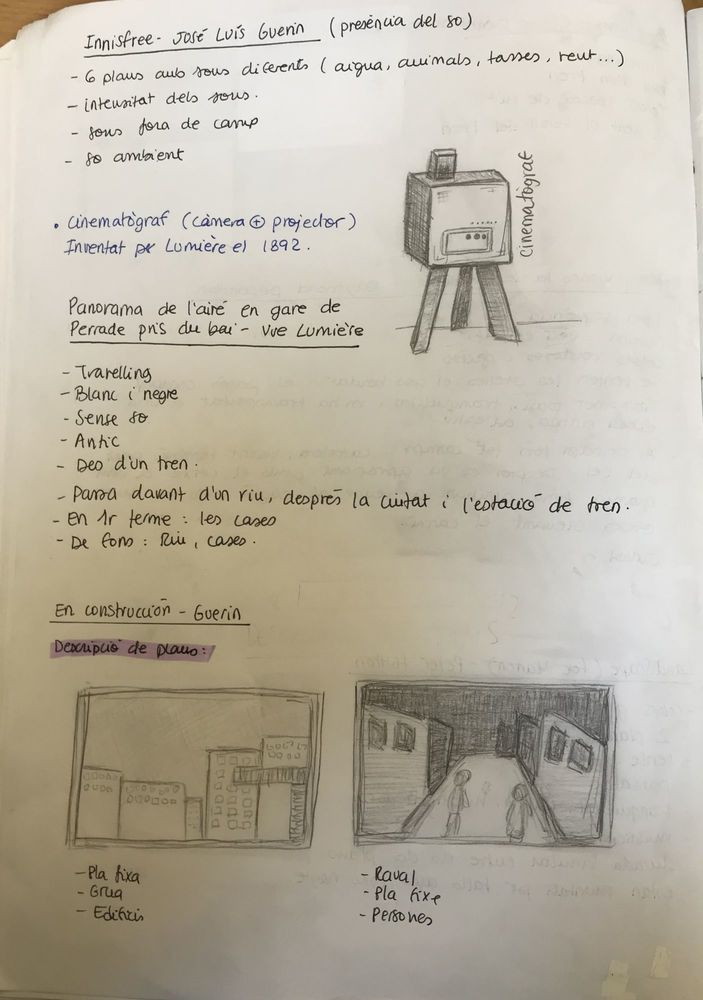 Innisfree - José Luís Guerin (presència del so)
- 6 plans amb sons diferents (aigua, animals, tasses, vent...)
- intensitat dels sons.
- sons fora de camp
- so ambient
cinematògraf
• Cinematògraf (càmera ⊕ projector)
Inventat per Lumière el 1892.
Panorama de l'airé en gare de
Perrade pris du bai - vue Lumière
- Travelling
- Blanc i negre
- Sense so
- Antic
- Deo d'un tren.
- Passa davant d'un riu, després la ciutat i l'estació de tren.
- En 1r terme : les cases
- De fons : Riu, cases.
En construcción - Guerin
Descripció de plans:
- Pla fixa
- Grua
- Edificis
- Raval
- Pla fixe
- Persones